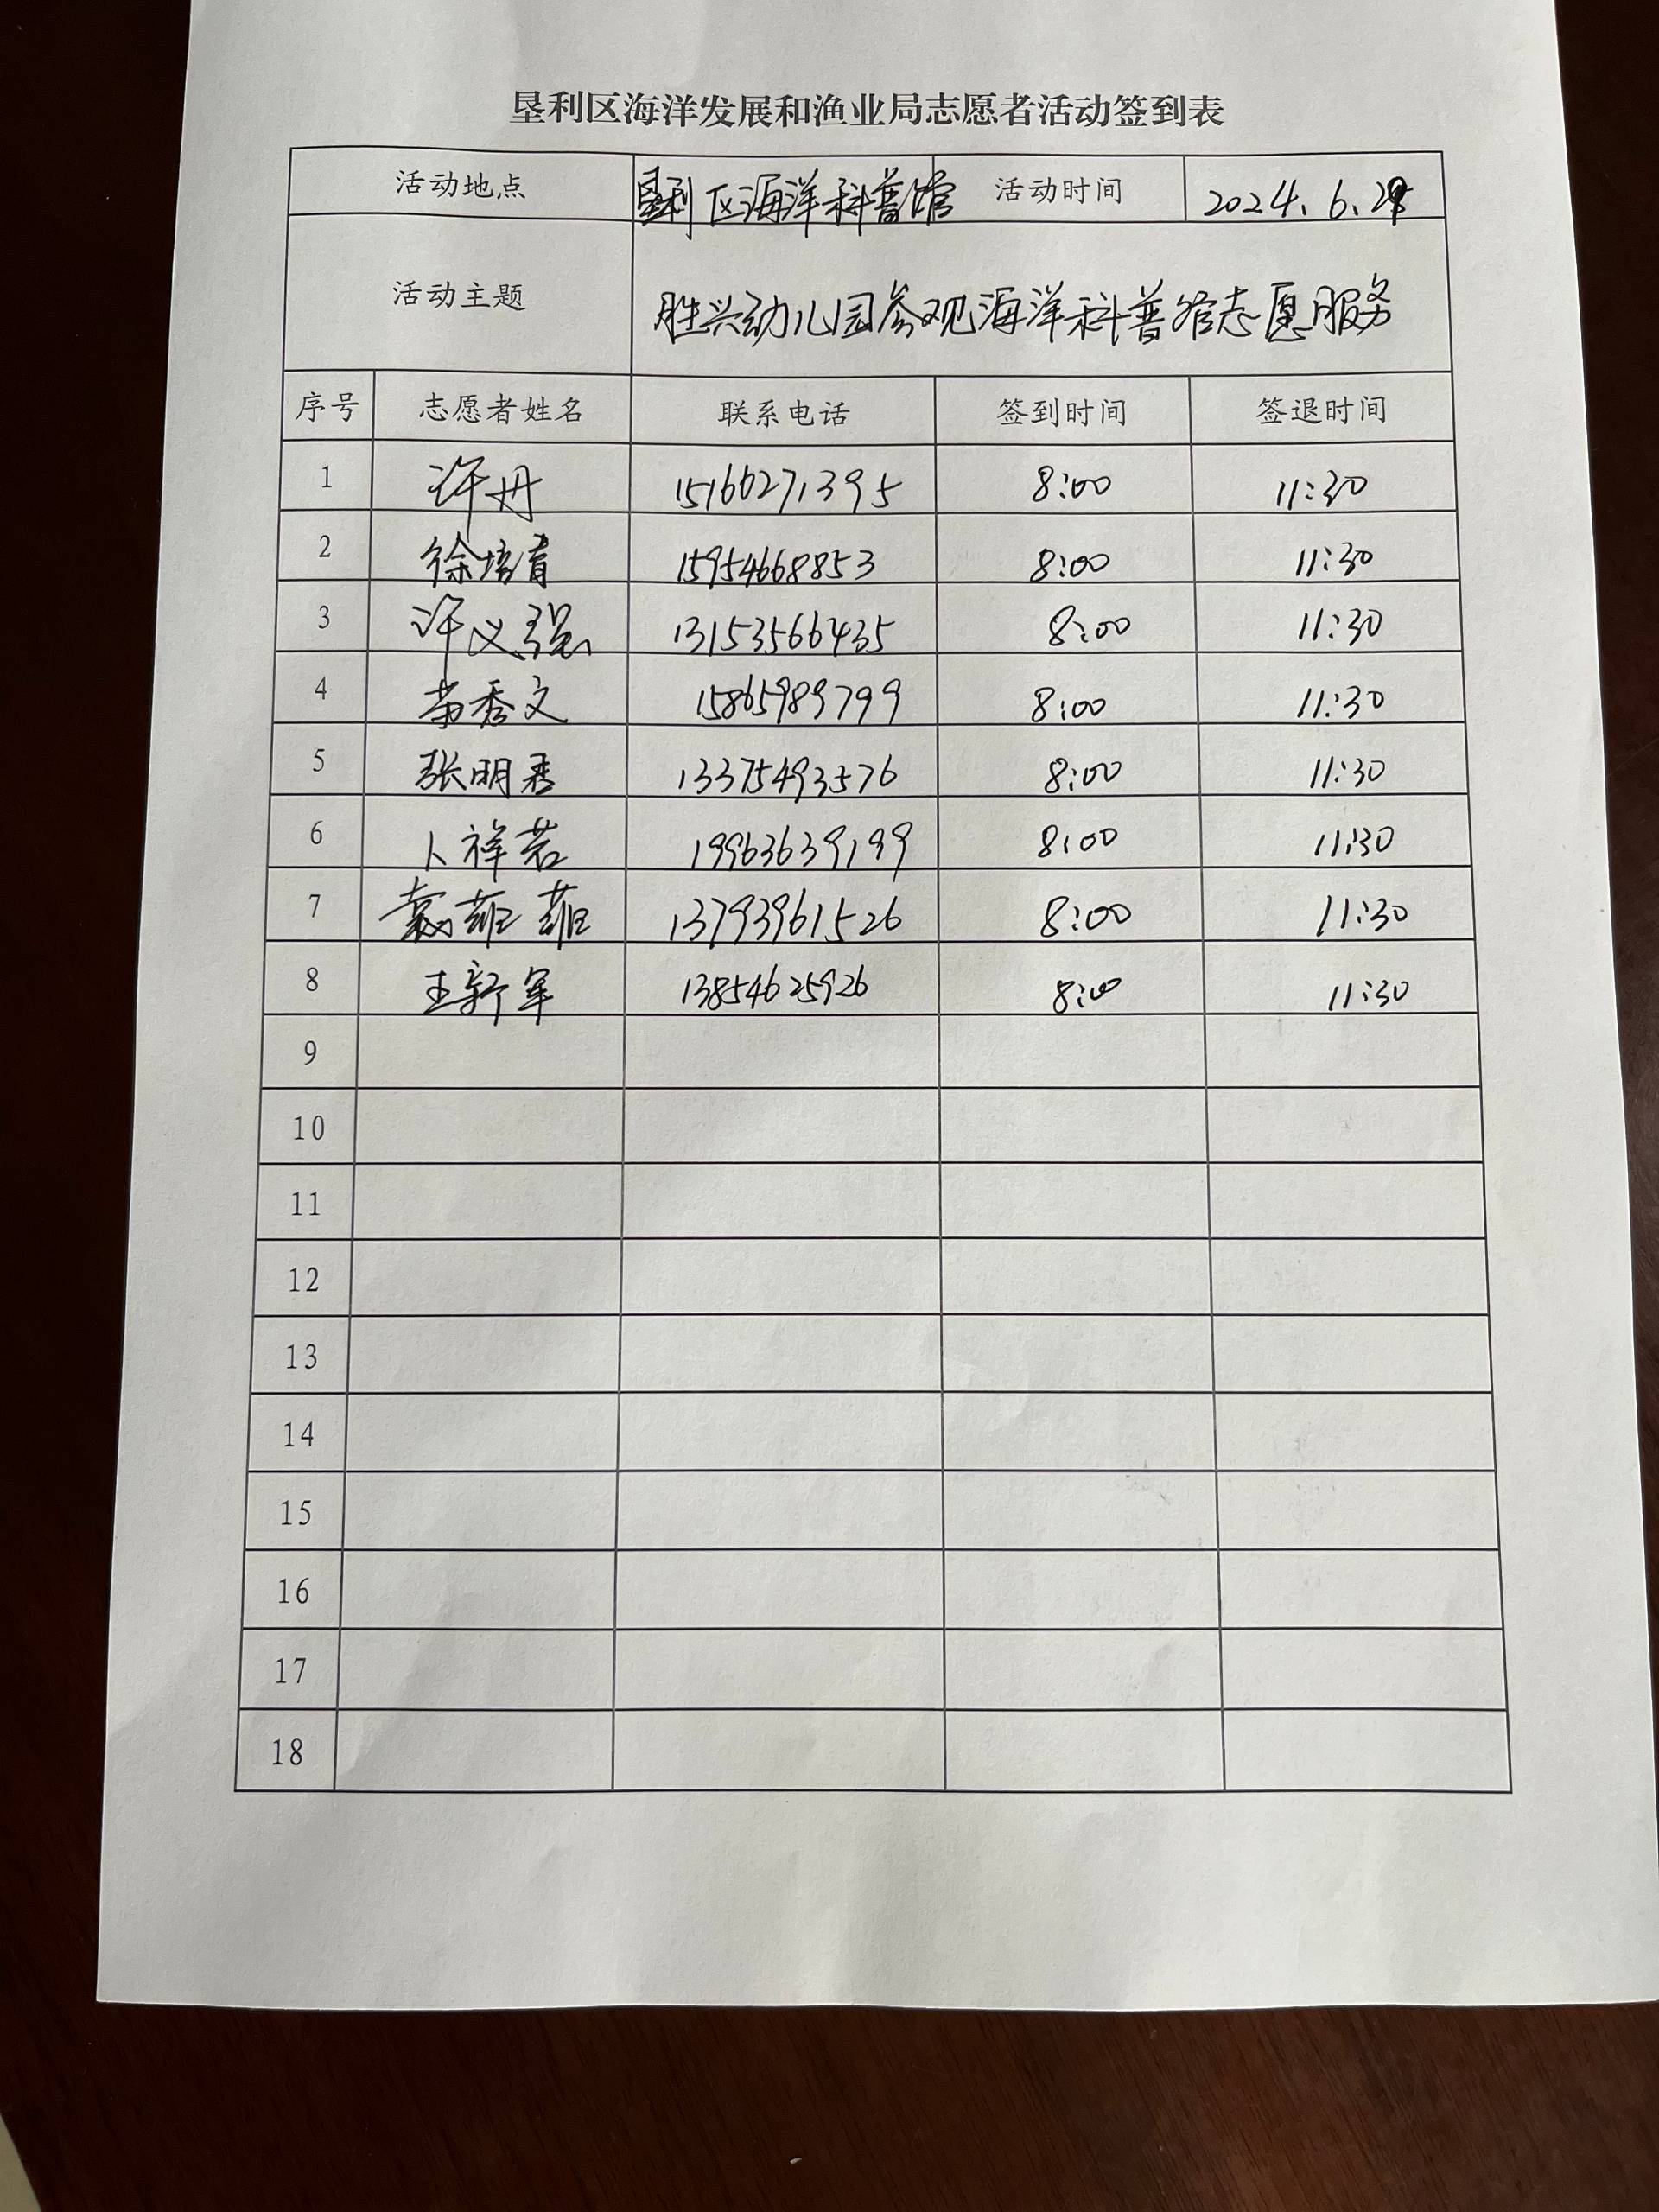 垦利区海洋发展和渔业局志愿者活动签到表
活动地点 垦利区海洋科普馆 活动时间 2024.6.28
活动主题 胜兴幼儿园参观海洋科普馆志愿服务
序号 志愿者姓名 联系电话 签到时间 签退时间
1 许丹 15166271395 8:00 11:30
2 徐培育 15954668853 8:00 11:30
3 许义强 13153566435 8:00 11:30
4 苗秀文 15865989799 8:00 11:30
5 张明秀 13375493576 8:00 11:30
6 卜祥若 19963639199 8:00 11:30
7 袁菲菲 13793961526 8:00 11:30
8 王新军 13854625926 8:00 11:30
9
10
11
12
13
14
15
16
17
18